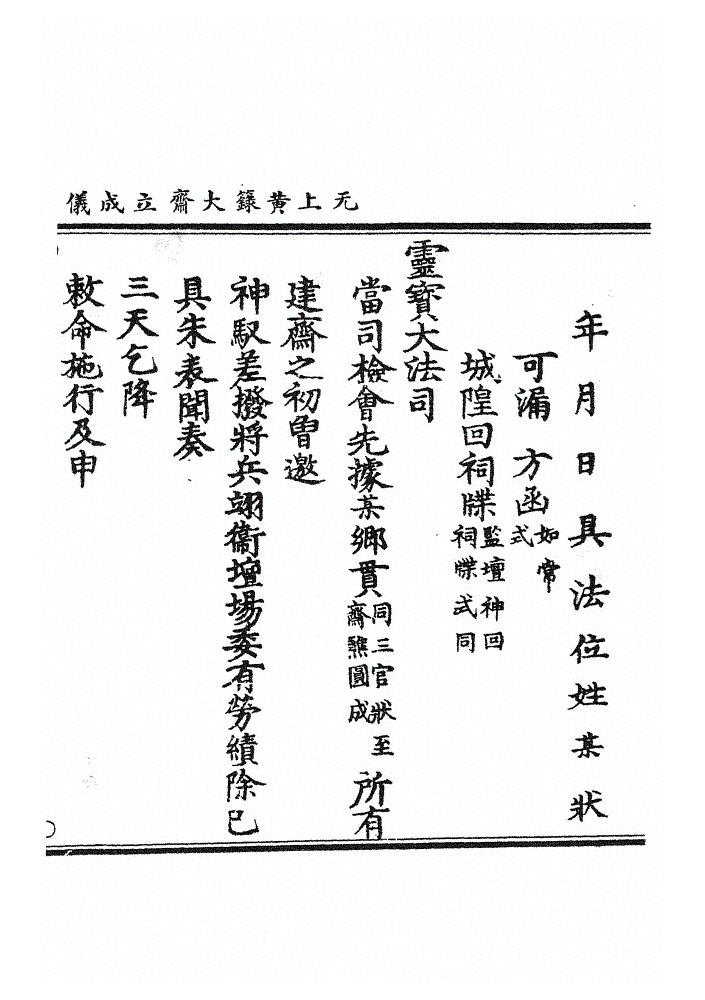 儀成立齋大籙黃上无
年月日具法位姓某狀
可漏方函如常式
城隍回祠牒監壇神回祠牒式同
靈寶大法司
當司檢會先據某鄉貫同三官狀至齋醮圓成所有
建齋之初曾邀
神馭差撥將兵翊衞壇場委有勞績除已
具朱表聞奏
三天乞降
敕命施行及申